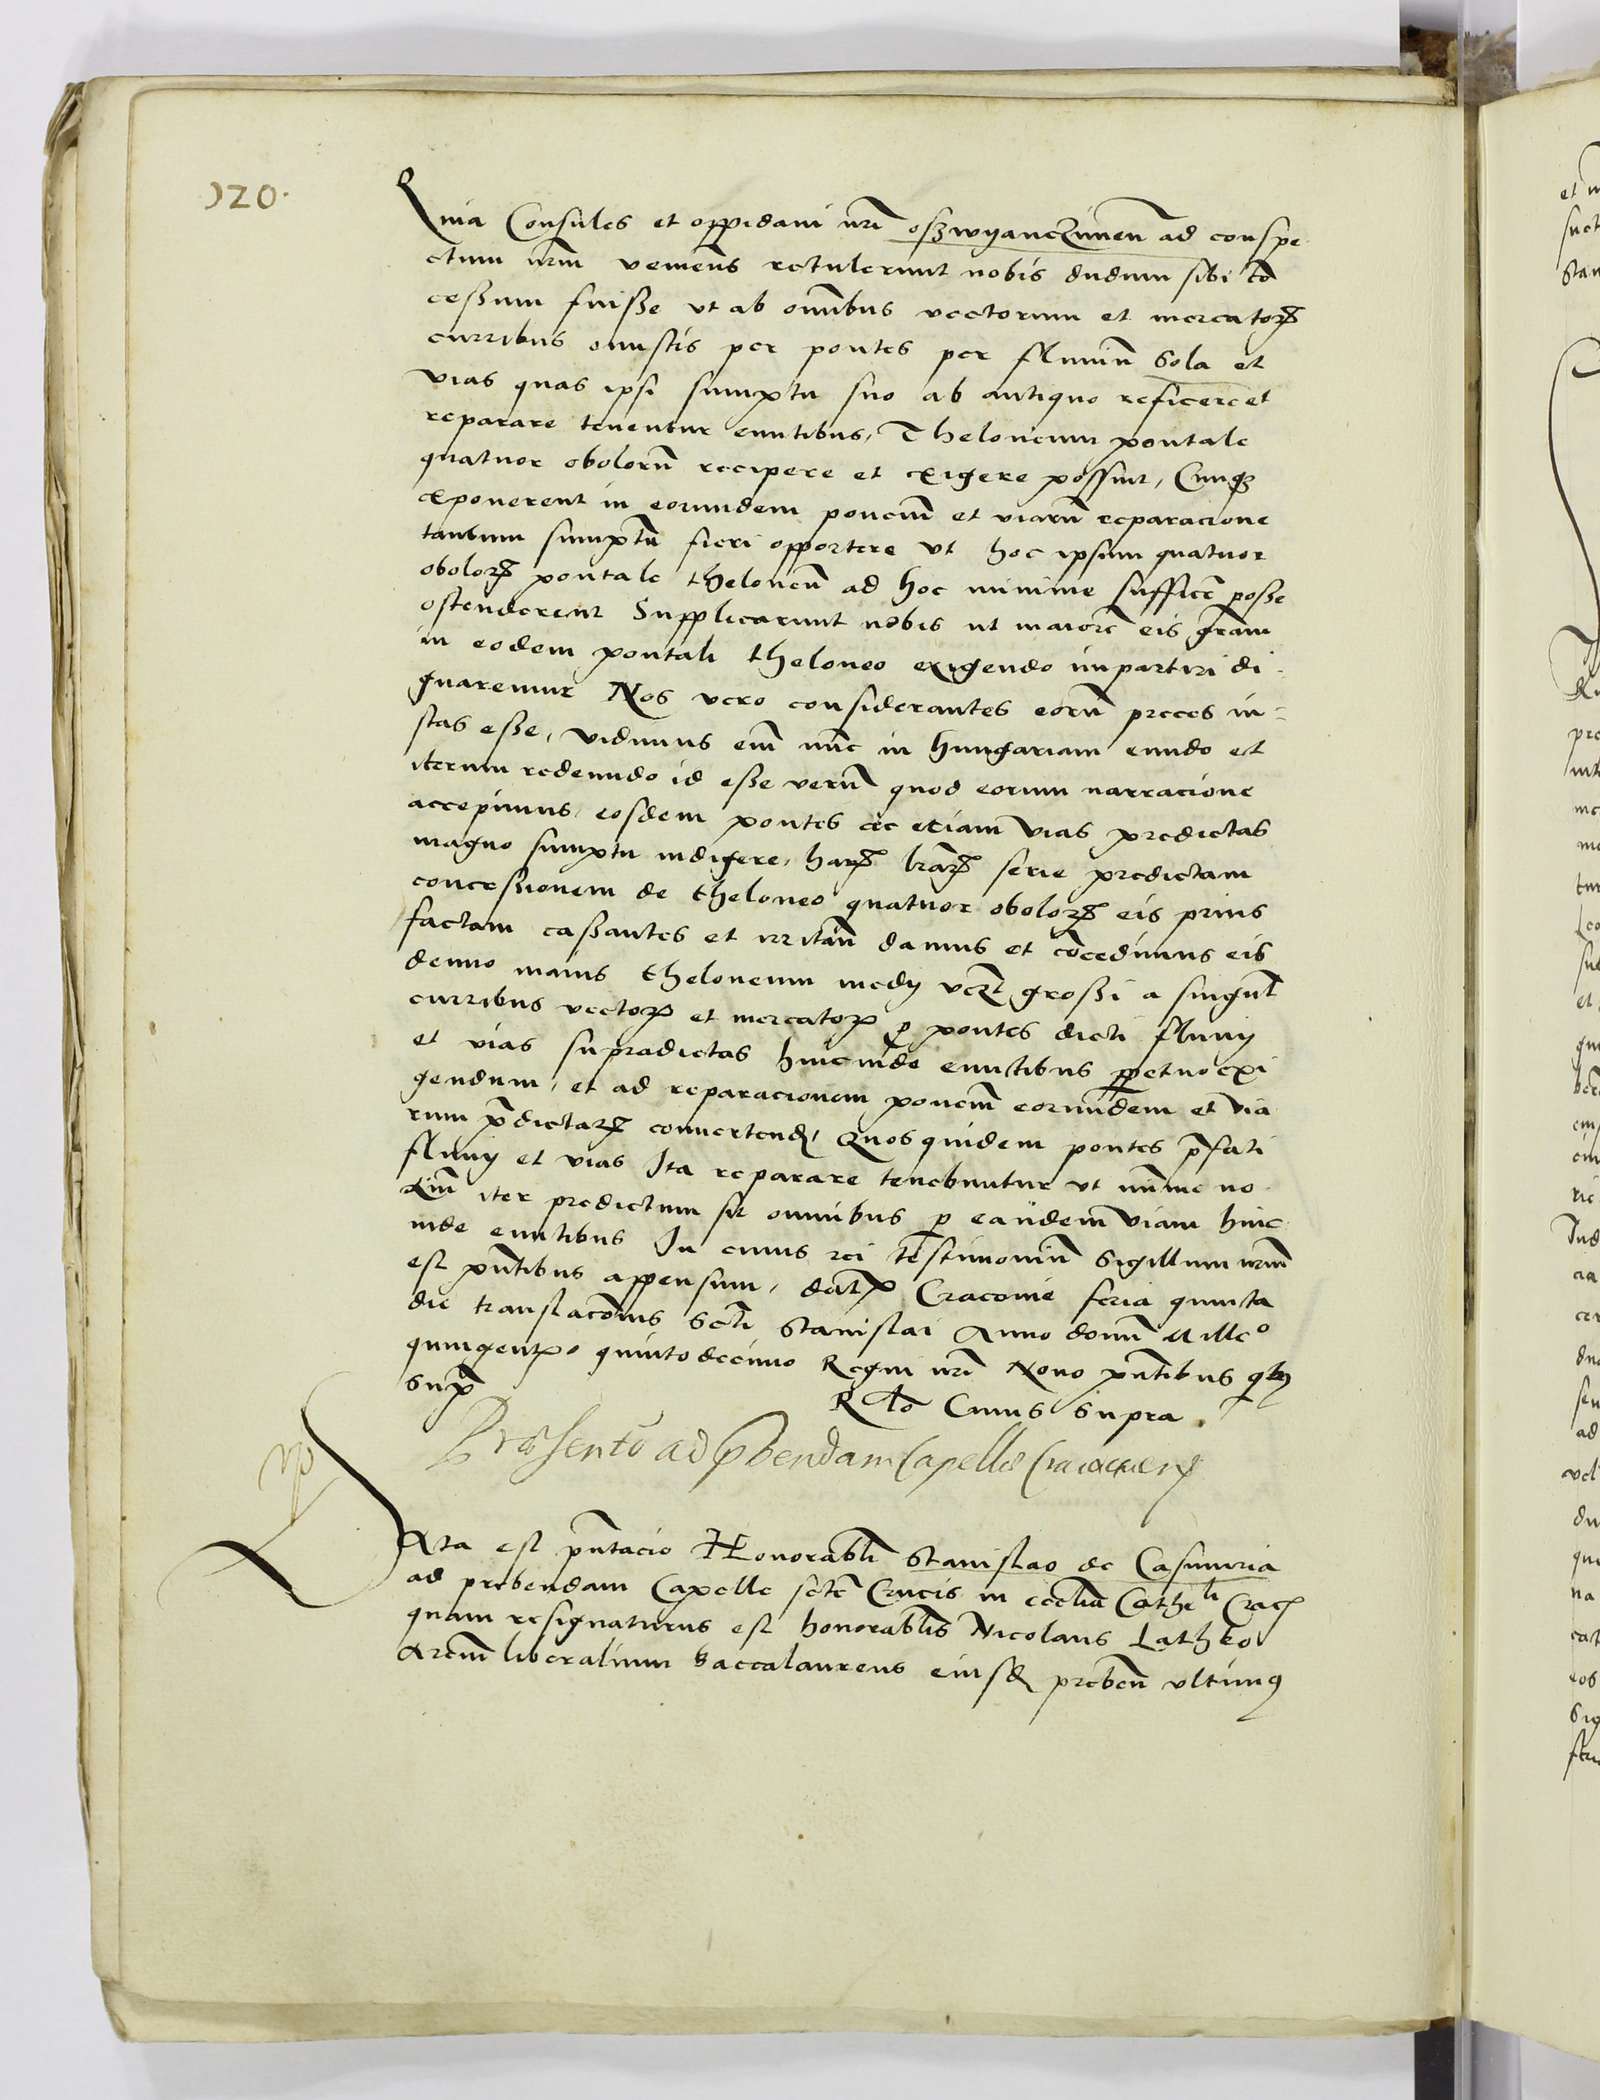 120.
Quia Consules et oppidani nri oszwyanczimen ad conspe
ctum nrm veniens retulerunt nobis dudum sibi con
cessum fuisse ut ab omnibus vectorum et mercatorum
curribus onustis per pontes per fluvium Sola et
vias quas ipsi sumptu suo ab antiquo reficere et
reparare tenentur euntibus, Theloneum pontale
quatuor obolorum recipere et exigere possint, Cumque
exponerent in eorundem poncium et viarum reparacione
tantum sumptum fieri opportere ut hoc ipsum quatuor
obolorum pontale theloneum ad hoc minime sufficere posse
ostenderent Supplicarunt nobis ut maiorem eis gratiam
in eodem pontali theloneo exigendo impartiri di
gnaremur Nos vero considerantes eorum preces iu=
stas esse, vidimus enim nunc in Hungariam eundo et
iterum redeundo id esse verum quod eorum narracione
accepimus, eosdem pontes ac etiam vias predictas
magno sumptu indigere, harum literarum serie predictam
concessionem de theloneo quatuor obolorum eis prius
factam cassantes et irritantes damus et concedimus eis
denuo maius theloneum medy grossi a singulis
curribus vectorum et mercatorum per pontes dicti fluvy
et vias supradictas hincinde euntibus perpetuo exi
gendum, et ad reparacionem poncium eorundem et via
rum predictarum convertendum, Quos quidem pontes prefati
fluvy et vias Ita reparare tenebuntur ut minime no
xium iter predictum sit omnibus per eandem viam hinc
inde euntibus In cuius rei testimonium Sigillum nrum
est pntibus appensum, datum Cracovie feria quinta
die translacionis Scti Stanislai Anno domini Mille°
quingentesimo quintodecimo Regni nri Nono pntibus quibus
supra
Rlo Cuius supra
Praesento ad prbendam Capellae Cracovien
Data est pntacio Honorabli Stanislao de Casimiria
ad prebendam Capelle scte Crucis in ecclia Cathedrali Crac
quam resignaturus est honorablis Nicolaus Lathko
Arcium liberalium Baccalaureus eiusdem preben ultimus